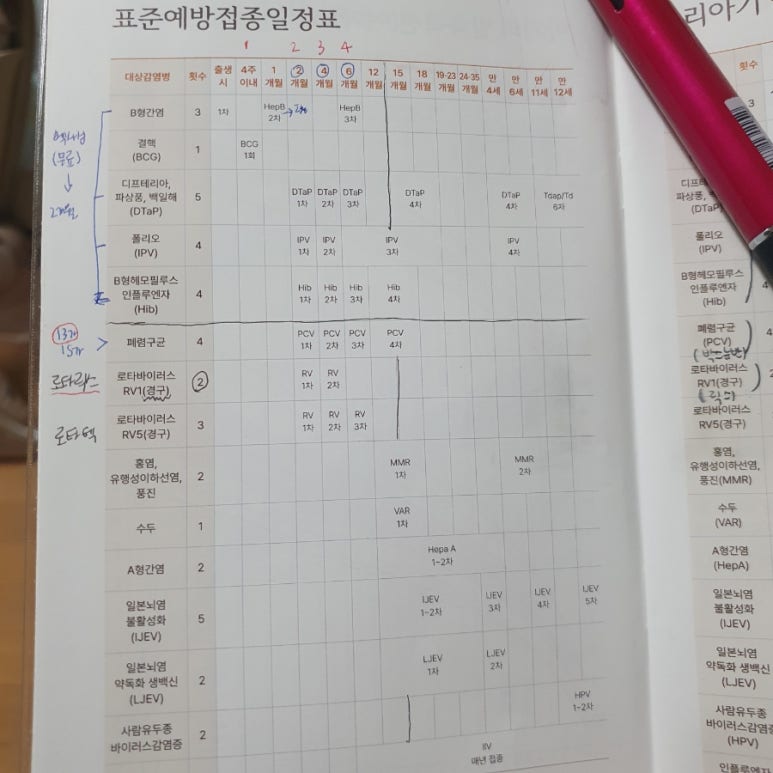 표준예방접종일정표
리아기
1 2 3 4
대상감염병 횟수 출생시 4주 이내 1개월 2개월 4개월 6개월 12개월 15개월 18개월 19-23개월 24-35개월 만 4세 만 6세 만 11세 만 12세
B형간염 3 1차 HepB 2차 HepB 3차
(무료)
결핵 (BCG) 1 BCG 1회
디프테리아, 파상풍, 백일해 (DTaP) 5 DTaP 1차 DTaP 2차 DTaP 3차 DTaP 4차 DTaP 4차 Tdap/Td 6차
2개월
폴리오 (IPV) 4 IPV 1차 IPV 2차 IPV 3차 IPV 4차
B형헤모필루스 인플루엔자 (Hib) 4 Hib 1차 Hib 2차 Hib 3차 Hib 4차
13가
15가
폐렴구균 4 PCV 1차 PCV 2차 PCV 3차 PCV 4차
로타릭스
로타바이러스 RV1(경구) 2 RV 1차 RV 2차
로타텍
로타바이러스 RV5(경구) 3 RV 1차 RV 2차 RV 3차
홍염, 유행성이하선염, 풍진 2 MMR 1차 MMR 2차
수두 1 VAR 1차
A형간염 2 Hepa A 1~2차
일본뇌염 불활성화 (IJEV) 5 IJEV 1~2차 IJEV 3차 IJEV 4차 IJEV 5차
일본뇌염 약독화 생백신 (LJEV) 2 LJEV 1차 LJEV 2차
사람유두종 바이러스감염증 2 HPV 1~2차
IIV 매년 접종
횟수
3
1
디프
파상풍,
(DTaP)
폴리오
(IPV)
B형헤모필루스
인플루엔자
(Hib)
4
폐렴구균
(PCV)
4
로타바이러스
RV1(경구)
2
로타바이러스
RV5(경구)
홍염,
유행성이하선염,
풍진(MMR)
수두
(VAR)
A형간염
(HepA)
일본뇌염
불활성화
(IJEV)
일본뇌염
약독화 생백신
(LJEV)
사람유두종
바이러스감염증
(HPV)
인플루엔자